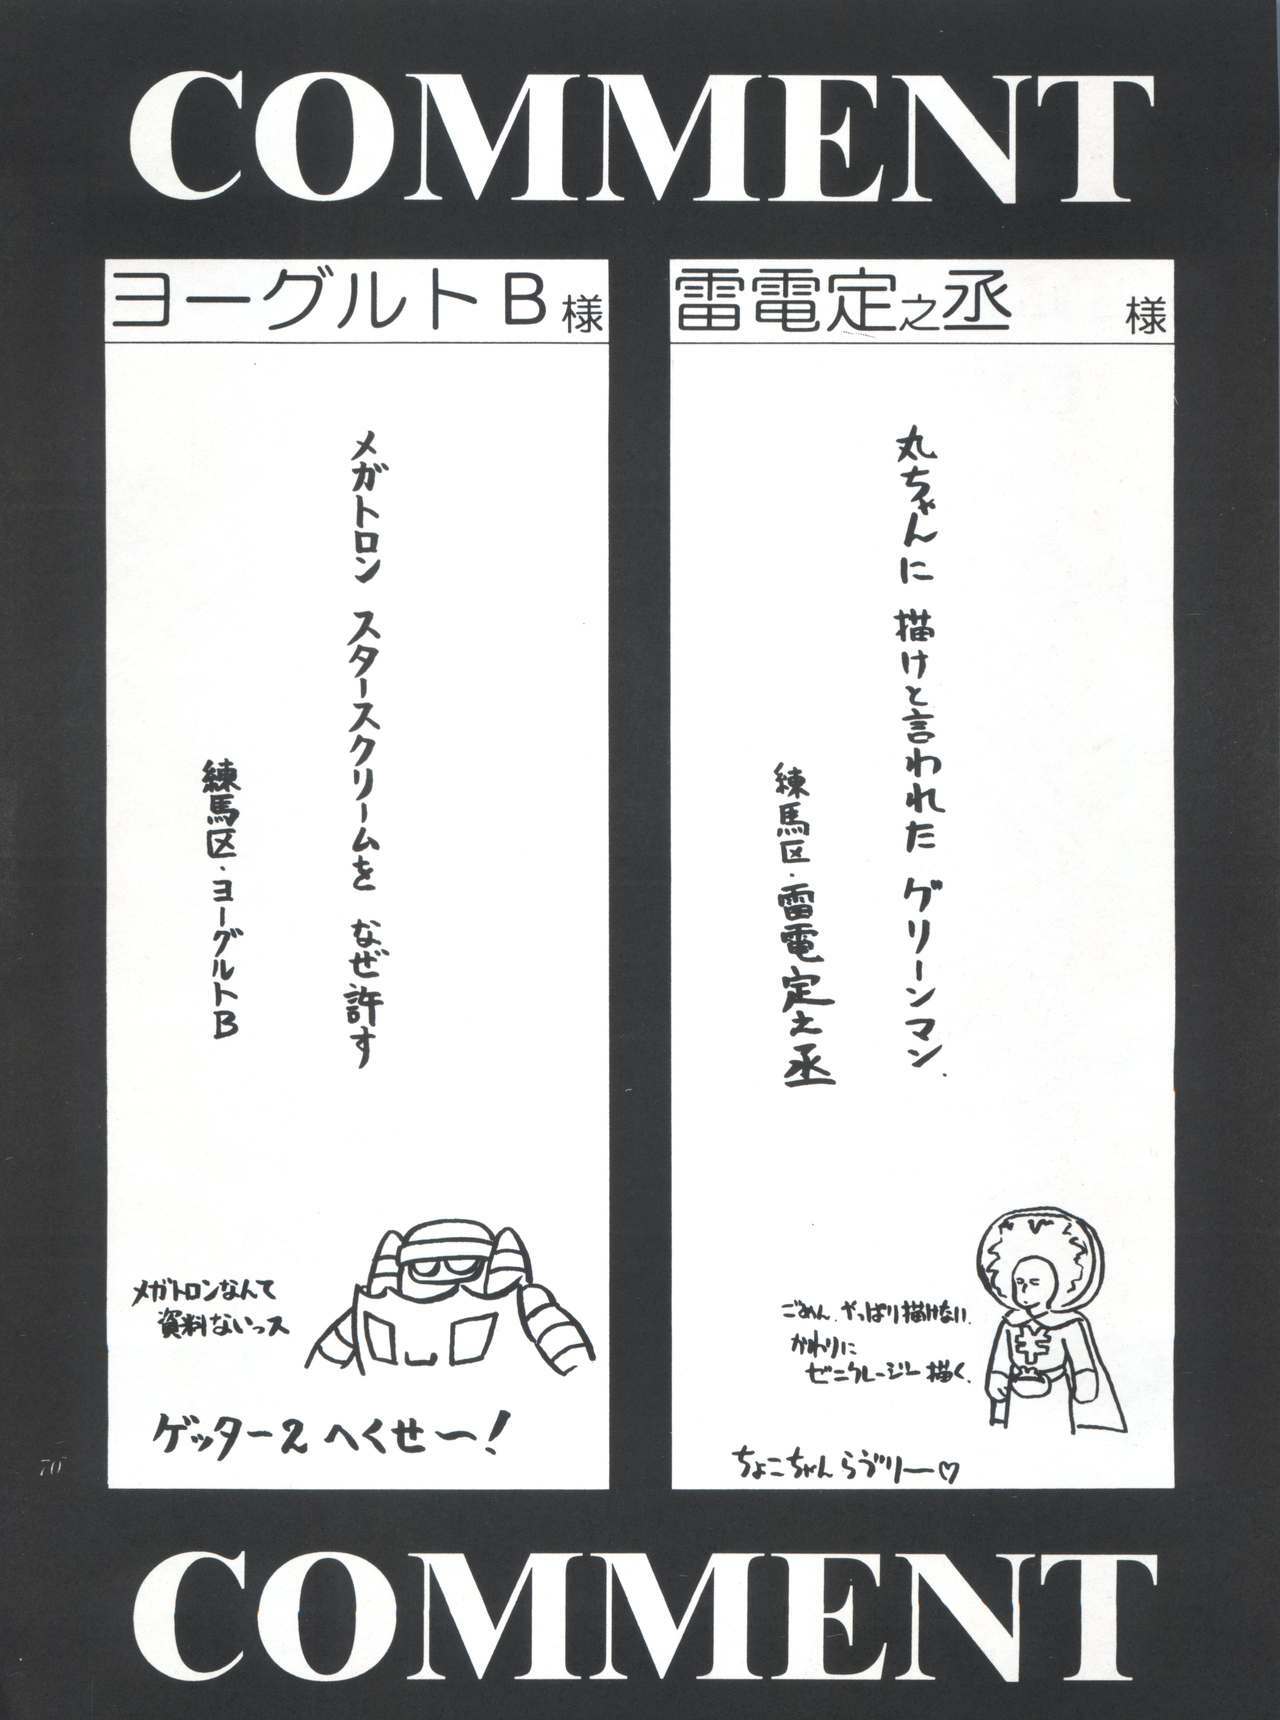 COMMENT
雷電定之丞 様
丸ちゃんに 描けと言われた グリーンマン.
練馬区・雷電定之丞
ごめん.やっぱり描けない.
かわりに
ゼニクレージー描く.
ちょこちゃん らぶりー♡
ヨーグルトB 様
メガトロン スタースクリームを なぜ許す
練馬区・ヨーグルトB
メガトロンなんて
資料ないっス
ゲッター2 へくせー!
70
COMMENT